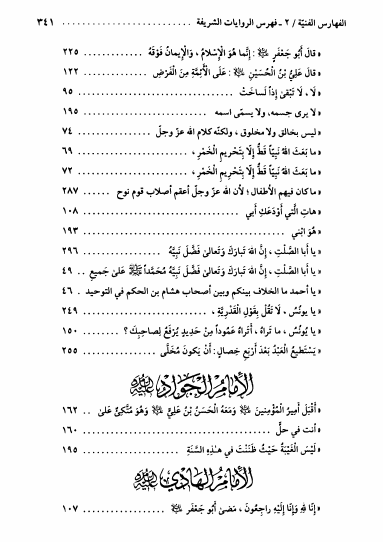 الفهارس الفنيّة / ٢ ـ فهرس الروايات الشريفة ........ ٣٤١
« قالَ أَبُو جَعْفَرٍ ﷺ : إنَّما هُوَ الإسْلامُ ، وَالإيمانُ فَوْقَهُ ........ ٢٢٥
« قالَ عَلِيُّ بْنُ الْحُسَيْنِ ﷺ : عَلَى الْأَئِمَّةِ مِنَ الْفَرْضِ ........ ١٢٢
« لَا ، لَا تَبْقىٰ إذاً لَساخَتْ ........ ٩٥
« لا يرى جسمه، ولا يسمّى اسمه ........ ١٩٥
« ليس بخالق ولا مخلوق ، ولكنّه كلام الله عزّ وجلّ ........ ٧٤
« ما بَعَثَ اللهُ نَبِيّاً قَطُّ إلّا بِتَحْرِيمِ الْخَمْرِ ، ........ ٦٩
« ما بَعَثَ اللهُ نَبِيّاً قَطُّ إلّا بِتَحْرِيمِ الْخَمْرِ ، ........ ٧٢
« ما كان فيهم الأطفال ؛ لأن الله عزّ وجلّ أعقم أصلاب قوم نوح ........ ٢٨٧
« هاتِ الَّتي أَوْدَعَكِ أَبي ........ ١٠٨
« هُوَ ابْني ........ ١٩٣
« يا أَبا الصَّلْتِ ، إنَّ اللهَ تَبارَكَ وَتَعالىٰ فَضَّلَ نَبِيَّهُ ........ ٢٩٦
« يا أَبا الصَّلْتِ ، إنَّ اللهَ تَبارَكَ وَتَعالىٰ فَضَّلَ نَبِيَّهُ مُحَمَّداً ﷺ عَلىٰ جَميعِ .. ٤٩
« يا أحمد ما الخلاف بينكم وبين أصحاب هشام بن الحكم في التوحيد . ٤٦
« يا يونُسُ ، لَا تَقُلْ بِقَوْلِ الْقَدَرِيَّةِ ، ........ ٢٤٩
« يا يُونُسُ ، ما تَراهُ ، أَتَراهُ عَمُوداً مِنْ حَديدٍ يُرْفَعُ لِصاحِبِكَ ؟ ........ ١٥٠
« يَسْتَطيعُ الْعَبْدُ بَعْدَ أَرْبَعِ خِصالٍ: أَنْ يَكونَ مُخَلّىٰ ........ ٢٥٥
الإمام الجواد ﷺ
« أَقْبَلَ أَميرُ الْمُؤْمِنينَ ﷺ وَمَعَهُ الْحَسَنُ بْنُ عَلِيٍّ ﷺ وَهُوَ مُتَّكِئٌ عَلىٰ .. ١٦٢
« أنت في حلّ ........ ١٦٠
« لَيْسَ الْغَيْبَةُ حَيْثُ ظَنَنْتَ في هٰذِهِ السَّنَةِ ........ ١٩٥
الإمام الهادي ﷺ
« إنَّا لِلهِ وَإنَّا إلَيْهِ راجِعُونَ ، مَضىٰ أَبُو جَعْفَرٍ ﷺ ........ ١٠٧